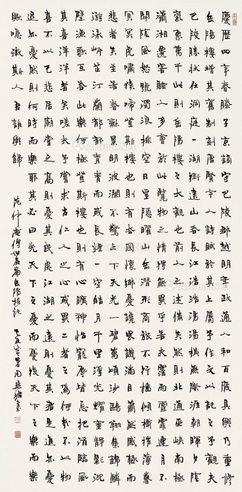 慶歷四年春滕子京謫守巴陵郡越明年政通人和百廢具興乃重修
岳陽樓增其舊制刻唐賢今人詩賦於其上屬予作文以記之予觀夫
巴陵勝狀在洞庭一湖銜遠山吞長江浩浩湯湯橫無際涯朝暉夕陰
氣象萬千此則岳陽樓之大觀也前人之述備矣然則北通巫峽南極
瀟湘遷客騷人多會於此覽物之情得無異乎若夫霪雨霏霏連月不
開陰風怒號濁浪排空日星隱耀山岳潛形商旅不行檣傾楫摧薄暮
冥冥虎嘯猿啼登斯樓也則有去國懷鄉憂讒畏譏滿目蕭然感極而
悲者矣至若春和景明波瀾不驚上下天光一碧萬頃沙鷗翔集錦鱗
游泳岸芷汀蘭郁郁青青而或長煙一空皓月千里浮光耀金靜影沉
璧漁歌互答此樂何極登斯樓也則有心曠神怡寵辱皆忘把酒臨風
其喜洋洋者矣嗟夫予嘗求古仁人之心或異二者之為何哉不以物
喜不以己悲居廟堂之高則憂其民處江湖之遠則憂其君是進亦憂
退亦憂然則何時而樂耶其必曰先天下之憂而憂後天下之樂而樂
歟噫微斯人吾誰與歸
范仲淹傳世名篇岳陽樓記